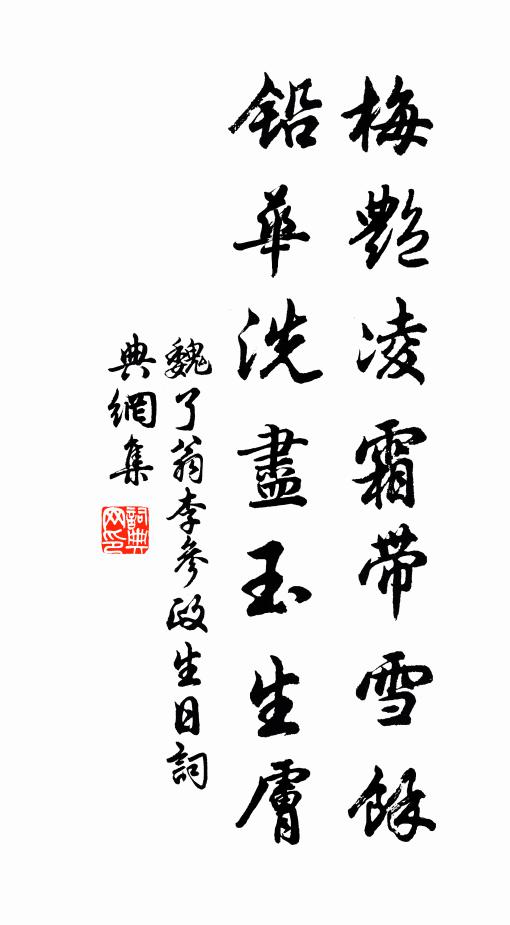 梅艷凌霜帶雪餘
鉛華洗盡玉生膚
魏了翁李參政生日詞
典網集
詞典网印